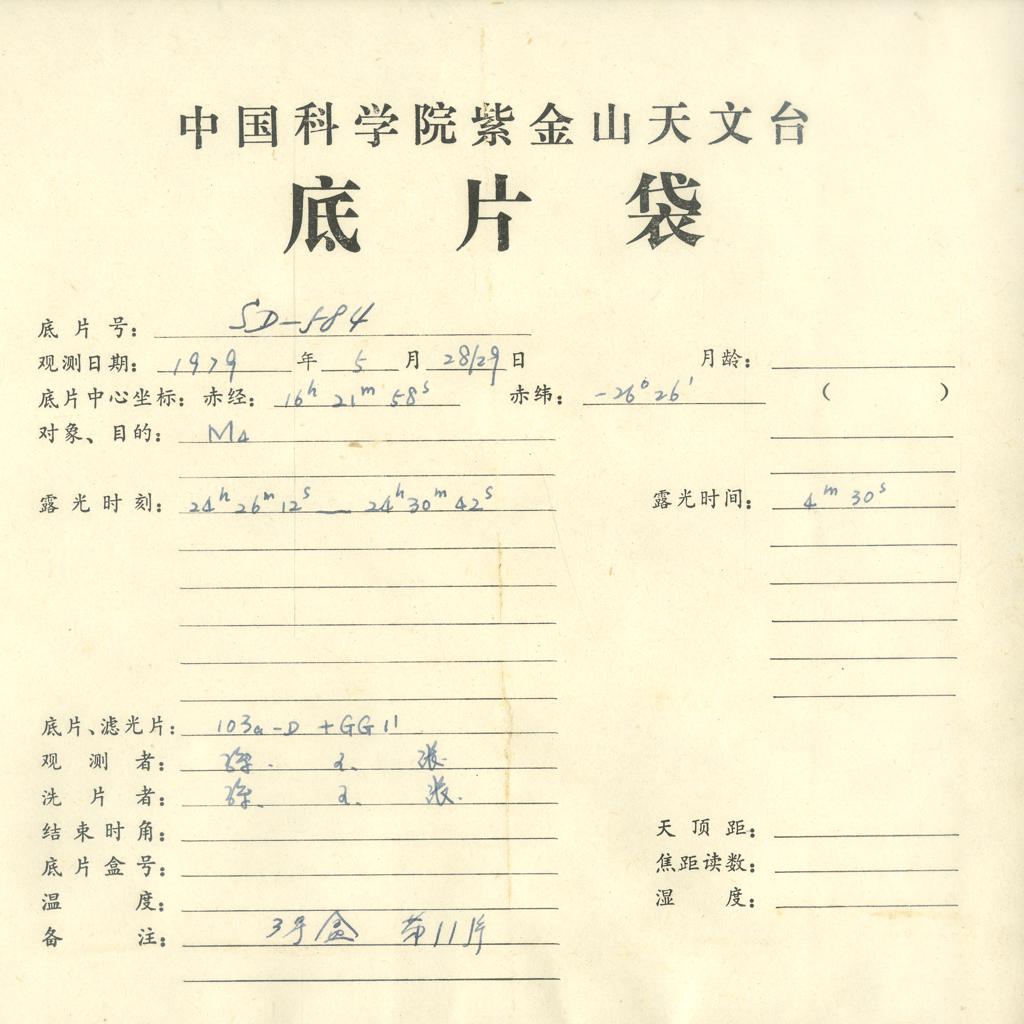 中国科学院紫金山天文台
底片袋
底片号： SD-584
观测日期： 1979 年 5 月 28/29 日 月龄：
底片中心坐标：赤经： 16h 21m 58s 赤纬： -26° 26′ （ ）
对象、目的： M4
露光时刻： 24h 26m 12s — 24h 30m 42s 露光时间： 4m 30s
底片、滤光片： 103a-D +GG11
观测者： 王. 张.
洗片者： 王. 张.
结束时角： 天顶距：
底片盒号： 焦距读数：
温度： 湿度：
备注： 3号盒 第11片